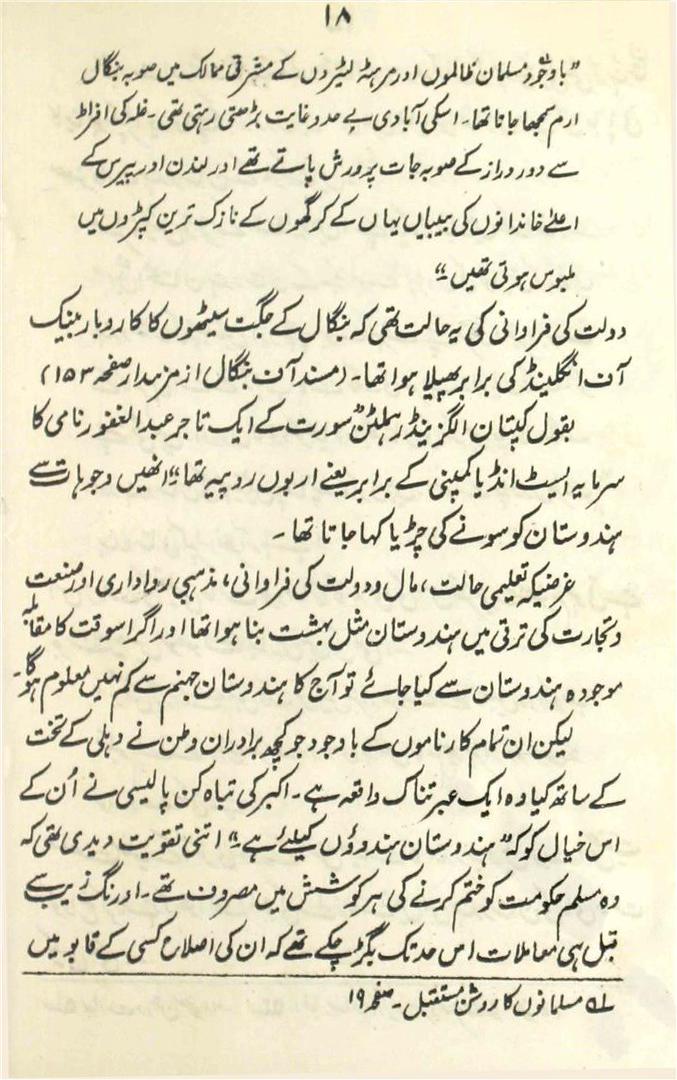 ۱۸
"باوجود مسلمان ظالموں اور مرہٹہ لیٹروں کے مشرقی ممالک میں صوبہ بنگال
ارم سمجھا جاتا تھا۔ اسکی آبادی بے حد و غایت بڑھتی رہتی تھی۔ غلہ کی افراط
سے دور دراز کے صوبہ جات پرورش پاتے تھے اور لندن اور پیرس کے
اعلےٰ خاندانوں کی بیبیاں یہاں کے کرگھوں کے نازک ترین کپڑوں میں
ملبوس ہوتی تھیں۔"
دولت کی فراوانی کی یہ حالت تھی کہ بنگال کے جگت سیٹھوں کا کاروبار بینک
آف انگلینڈ کی برابر پھیلا ہوا تھا۔ (مسند آف بنگال از مزمدار صفحہ ۱۵۳)
بقول کپتان الگزینڈر ہملٹن سورت کے ایک تاجر عبدالغفور نامی کا
سرمایہ ایسٹ انڈیا کمپنی کے برابر یعنے اربوں روپیہ تھا۔" انھیں وجوہات سے
ہندوستان کو سونے کی چڑیا کہا جاتا تھا۔
غرضیکہ تعلیمی حالت، مال و دولت کی فراوانی، مذہبی رواداری اور صنعت
و تجارت کی ترقی میں ہندوستان مثل بہشت بنا ہوا تھا اور اگر اسوقت کا مقابلہ
موجودہ ہندوستان سے کیا جائے تو آج کا ہندوستان جہنم سے کم نہیں معلوم ہوگا۔
لیکن ان تمام کارناموں کے باوجود جو کچھ برادران وطن نے دہلی کے تخت
کے ساتھ کیا وہ ایک عبرتناک واقعہ ہے۔ اکبر کی تباہ کن پالیسی نے اُن کے
اس خیال کو کہ "ہندوستان ہندوؤں کیلئے ہے۔" اتنی تقویت دیدی تھی کہ
وہ مسلم حکومت کو ختم کرنے کی ہر کوشش میں مصروف تھے۔ اورنگ زیب سے
قبل ہی معاملات اس حد تک بگڑ چکے تھے کہ ان کی اصلاح کسی کے قابو میں
لہ مسلمانوں کا روشن مستقبل۔ صفحہ ۱۹